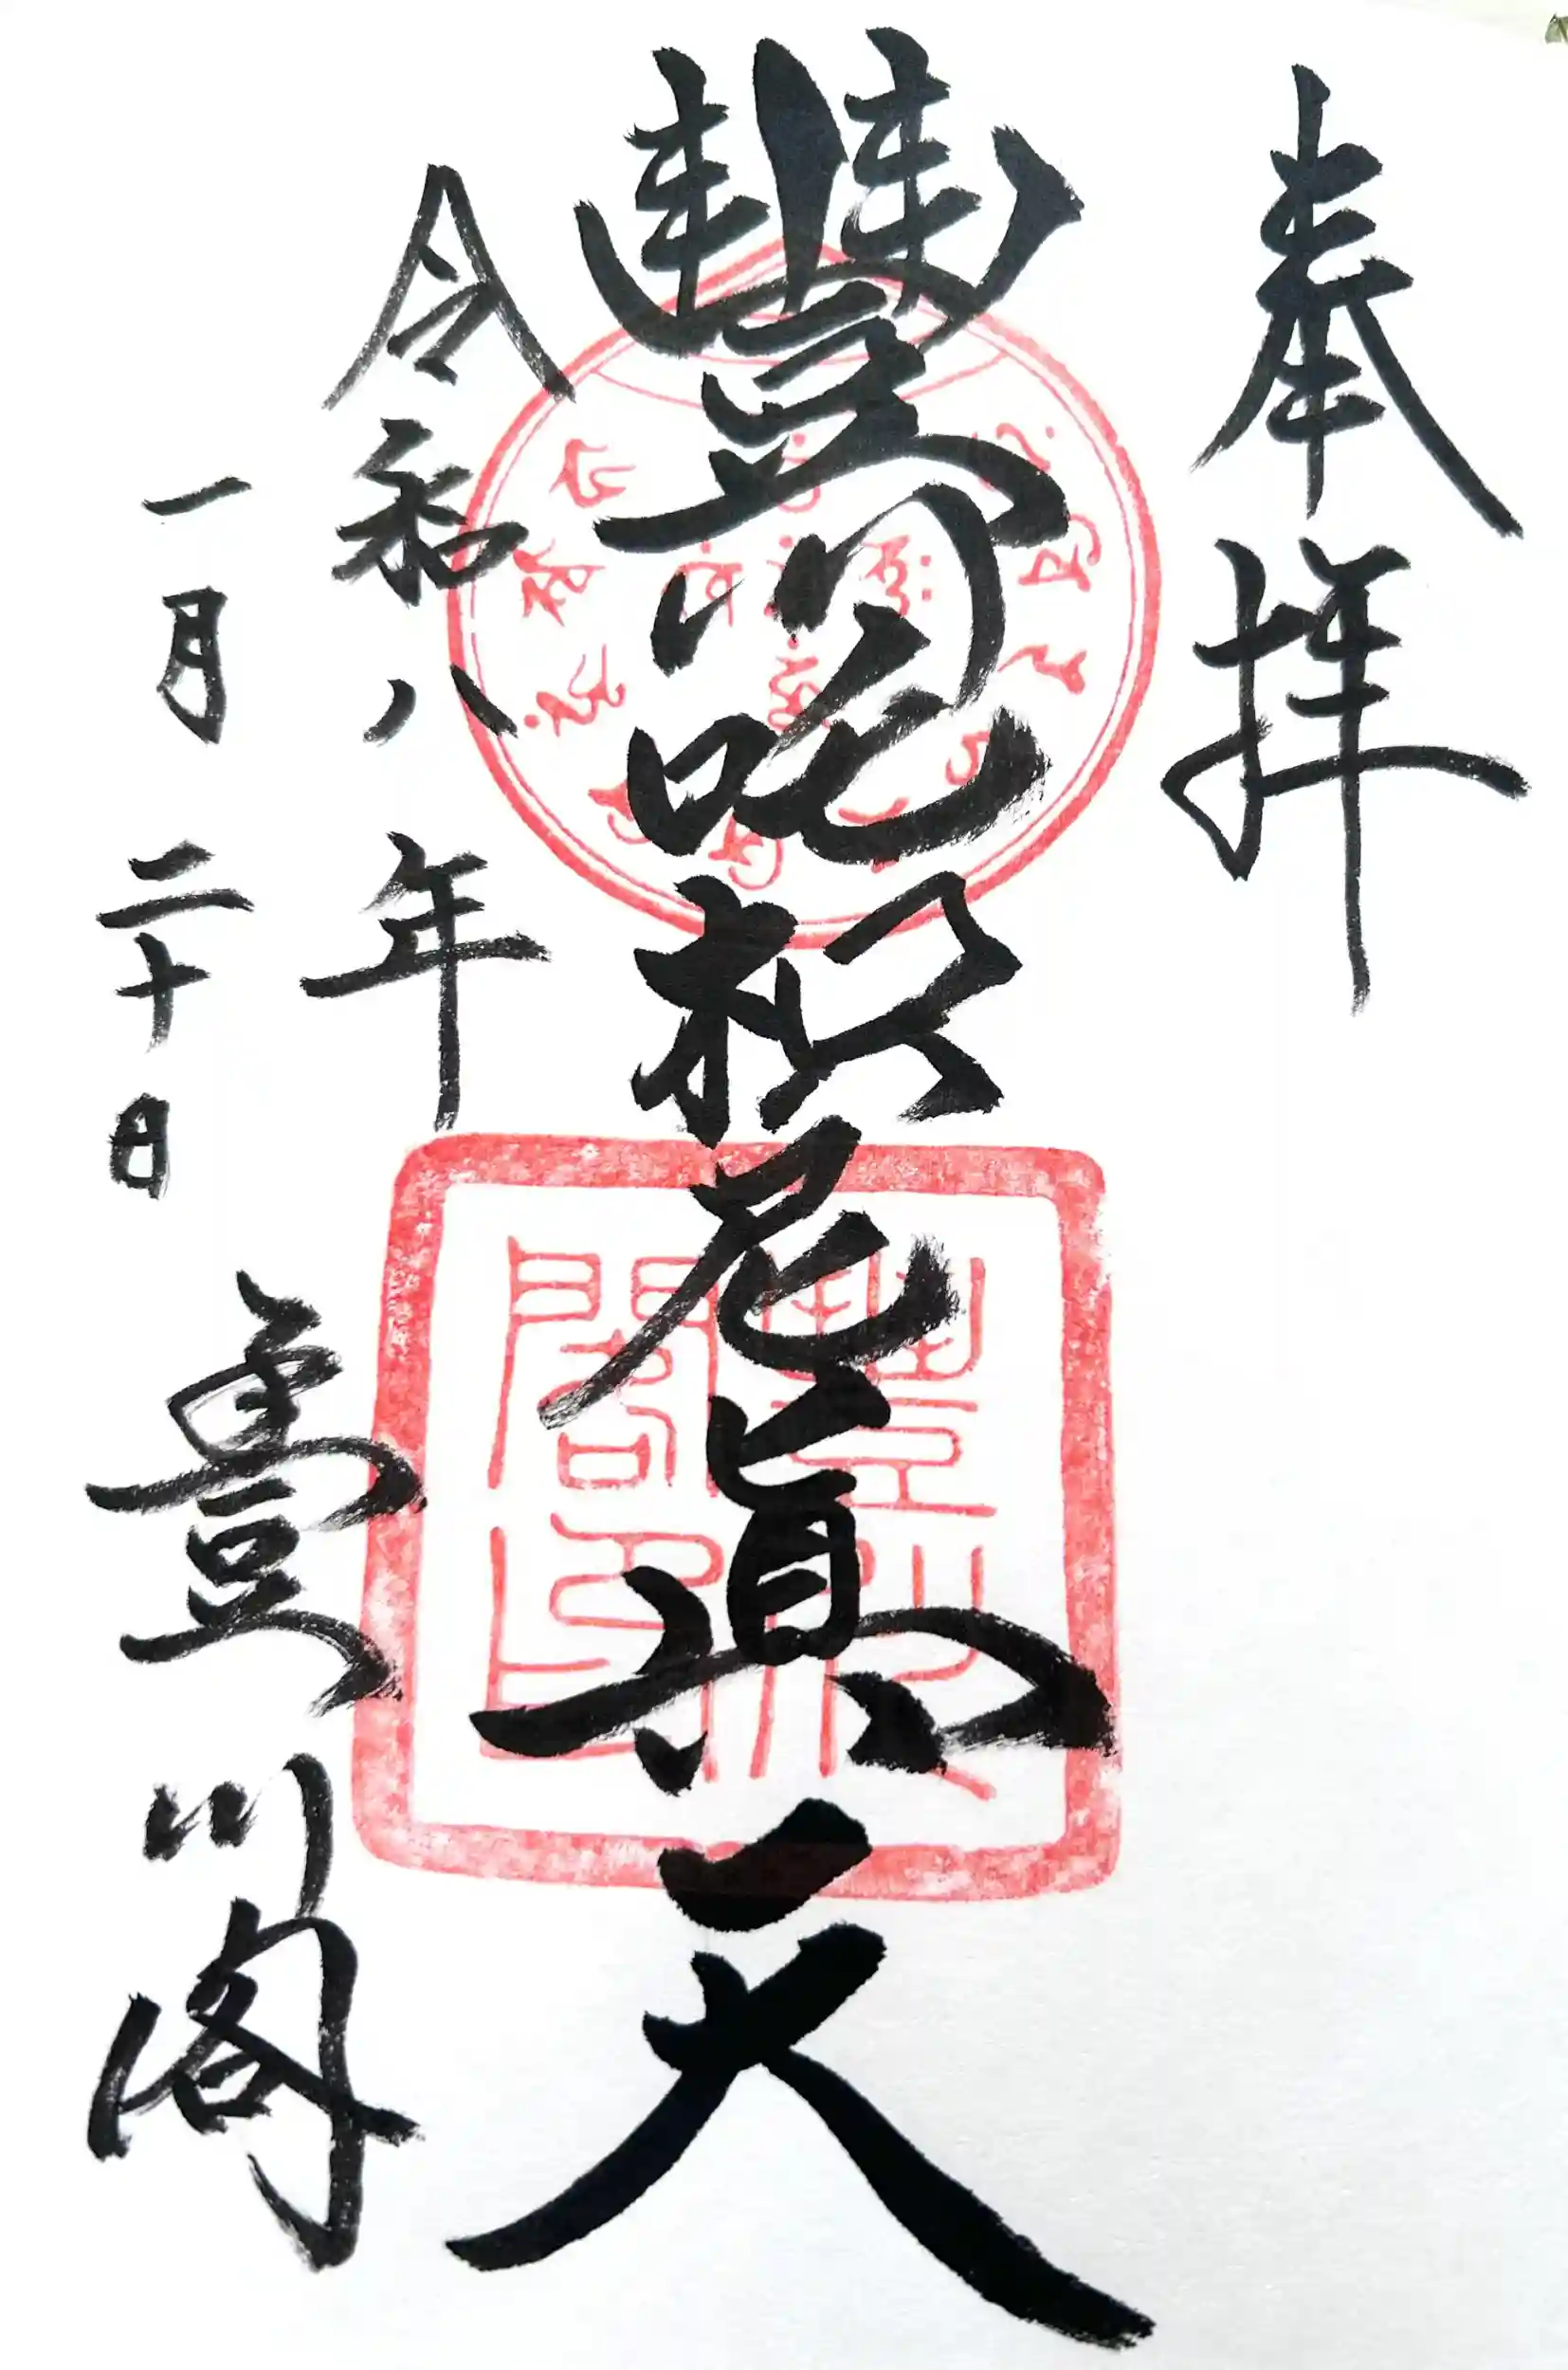 奉拝
豐川吒枳尼眞天
令和八年
一月二十日
豊川閣
豐川閣印